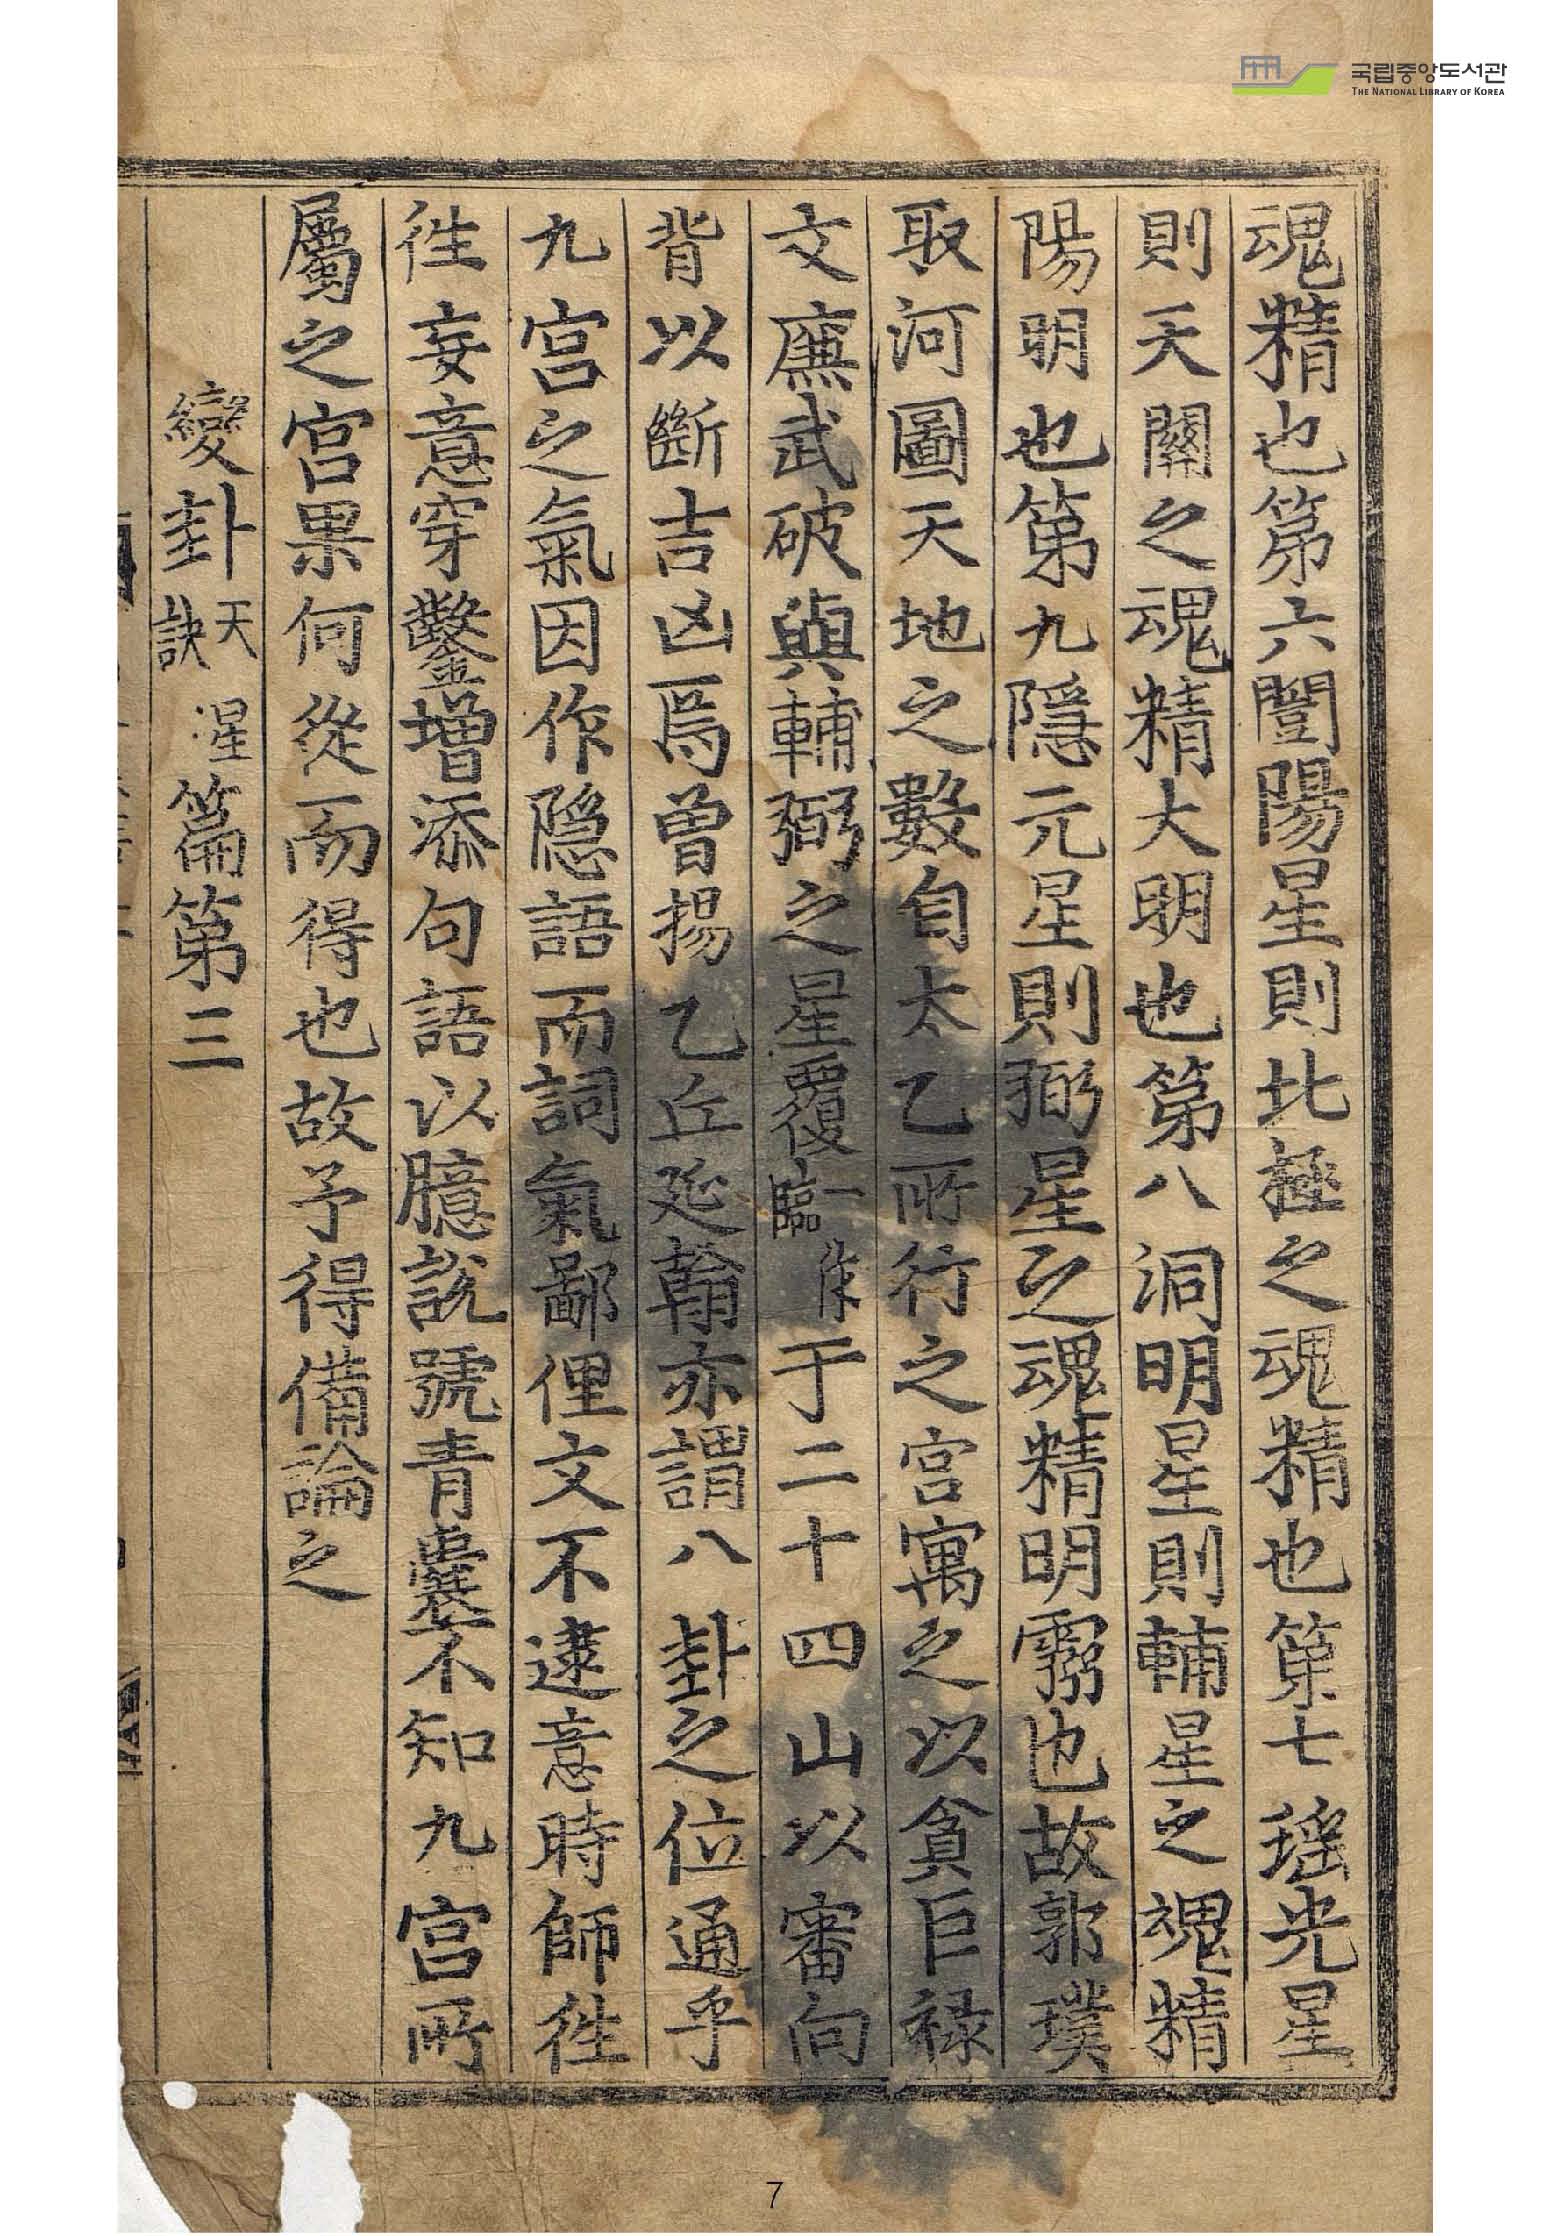 국립중앙도서관
THE NATIONAL LIBRARY OF KOREA
魂精也第六闓陽星則北極之魂精也第七瑤光星
則天關之魂精大明也第八洞明星則輔星之魂精
陽明也第九隱元星則弼星之魂精明霛也故郭璞
取河圖天地之數自太乙所行之宮寓之以貪巨祿
文廉武破與輔弼之星覆一作臨于二十四山以審向
背以斷吉凶焉曾揚乙丘延翰亦謂八卦之位通乎
九宮之氣因作隱語而詞氣鄙俚文不逮意時師徃
徃妄意穿鑿增添句語以臆說號青囊不知九宮所
屬之宮果何從而得也故予得備論之
變卦天星訣篇第三
7